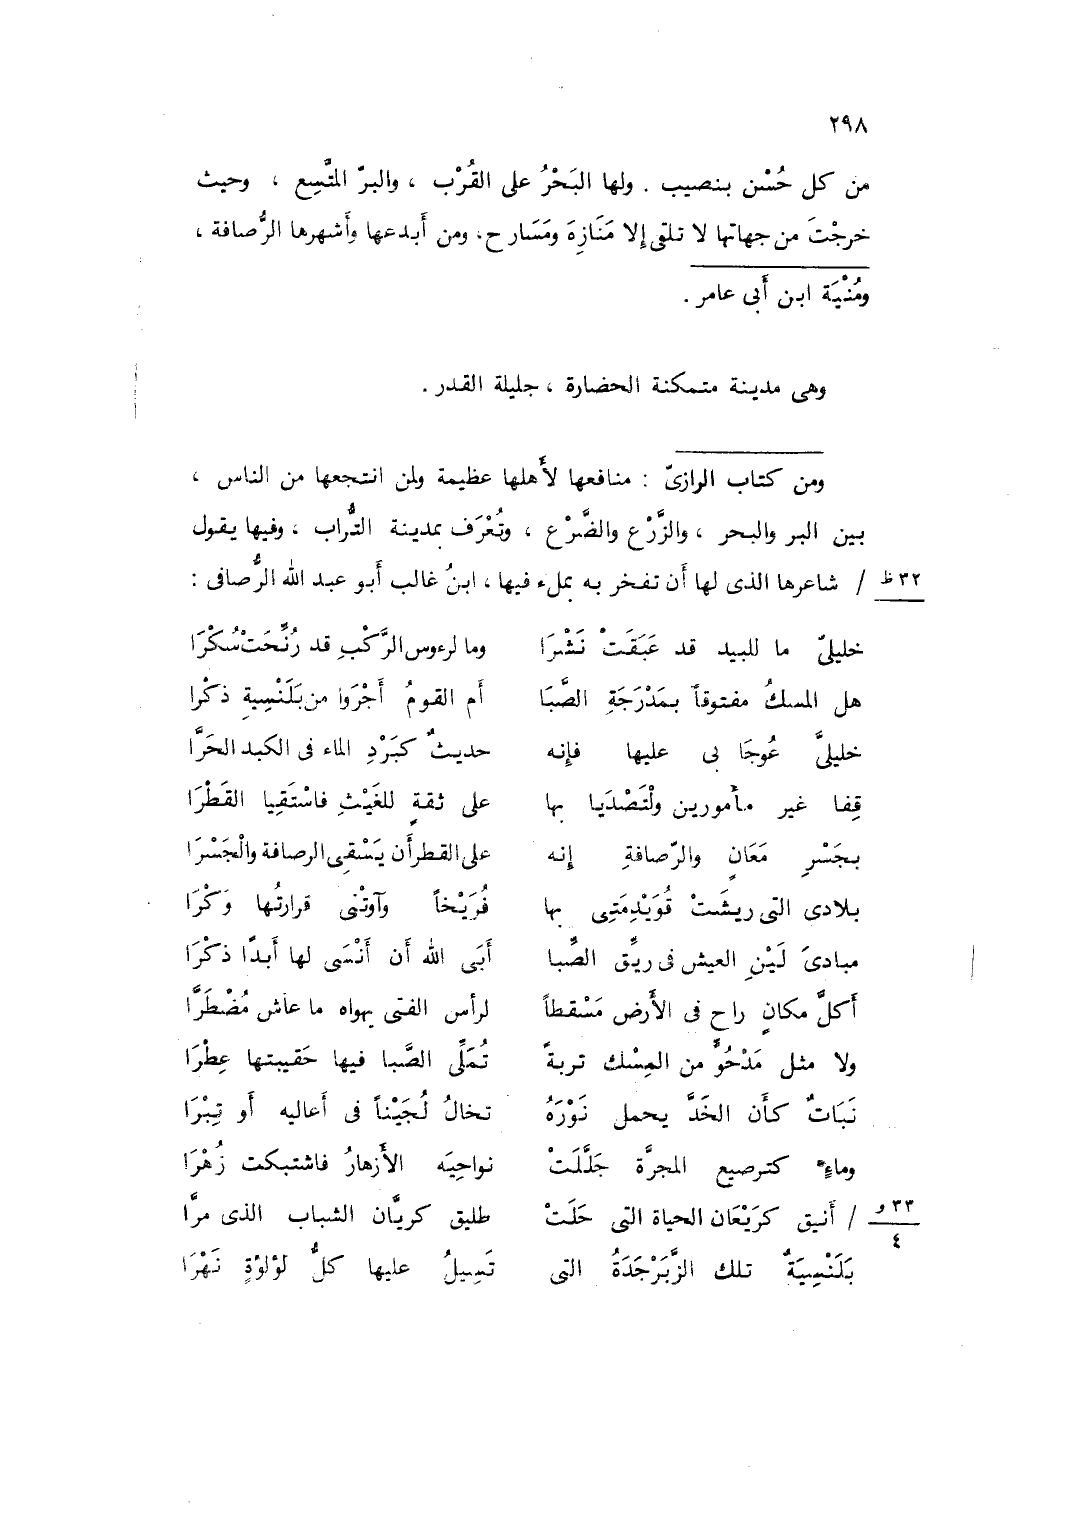 ٢٩٨
من كل حُسْن بنصيب . ولها البَحْرُ على القُرْب ، والبرّ المتَّسِع ، وحيث
خرجْتَ من جهاتها لا تلقى إلا مَنَازِهَ ومَسَارح، ومن أَبدعها وأَشهرها الرُّصافة ،
ومُنْيَة ابن أَبى عامر .
وهى مدينة متمكنة الحضارة ، جليلة القدر .
ومن كتاب الرازىّ : منافعها لأَهلها عظيمة ولمن انتجعها من الناس ،
بين البر والبحر ، والزَّرْع والضَّرْع ، وتُعْرَف بمدينة التُّراب ، وفيها يقول
٣٢ ظ / شاعرها الذى لها أَن تفخر به بملء فيها ، ابنُ غالب أَبو عبد الله الرُّصافى :
خليلىّ ما للبيد قد عَبَقَتْ نَشْرَا وما لرءوس الرَّكْبِ قد رُنِّحَتْ سُكْرَا
هل المسكُ مفتوقاً بمَدْرَجَةِ الصَّبَا أَم القومُ أَجْرَوا من بَلَنْسِيةٍ ذكْرا
خليلىَّ عُوجَا بى عليها فإنه حديثٌ كبَرْدِ الماء فى الكبد الحَرَّا
قِفا غير مأمورين ولْتَصْدَيا بها على ثقةٍ للغَيْثِ فاسْتَقِيا القَطْرَا
بجَسْرِ مَعَانٍ والرّصافةِ إنه على القطر أن يَسْقِى الرصافة والْجَسْرَا
بلادى التى ريشَتْ قُوَيْدِمَتِى بها فُرَيْخاً وآوتْنى قرارتُها وَكْرَا
مبادئَ لَيْنِ العيش فى ريِّق الصِّبا أَبَى الله أن أَنْسَى لها أَبدًا ذكْرَا
أَكلَّ مكانٍ راح فى الأَرض مَسْقطاً لرأس الفتى يهواه ما عاش مُضْطَرَّا
ولا مثل مَدْحُوٍّ من المِسْك تربةً تُمَلِّى الصَّبا فيها حَقيبتها عِطْرَا
نَبَاتٌ كأَن الخَدَّ يحمل نَوْرَهُ تخالُ لُجَيْناً فى أعاليه أَو تِبْرَا
وماءٍ كترصيع المجرَّة جَلَّلَتْ نواحِيَه الأَزهارُ فاشتبكت زُهْرَا
٣٣ و / أَنيق كرَيْعَان الحياة التى حَلَتْ طليق كريَّان الشباب الذى مرَّا
٤
بَلَنْسِيَةٌ تلك الزَّبَرْجَدَةُ التى تَسِيلُ عليها كلُّ لؤلؤةٍ نَهْرَا